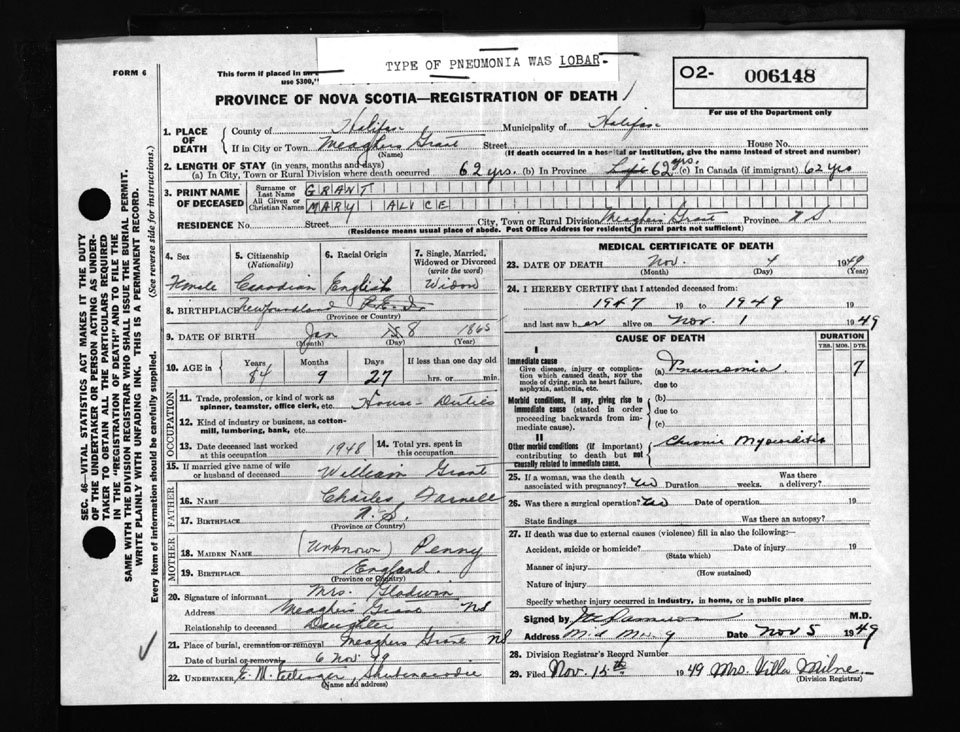 TYPE OF PNEUMONIA WAS LOBAR-
FORM 6
This form if placed in
use $300,"
O2- 006148
For use of the Department only
PROVINCE OF NOVA SCOTIA—REGISTRATION OF DEATH
1. PLACE OF DEATH
County of Halifax Municipality of Halifax
If in City or Town Meaghers Grant Street House No.
(Name) (If death occurred in a hospital or institution, give the name instead of street and number)
2. LENGTH OF STAY (in years, months and days)
(a) In City, Town or Rural Division where death occurred 62 yrs. (b) In Province Life 62 yrs. (c) In Canada (if immigrant) 62 yrs
3. PRINT NAME OF DECEASED
Surname or Last Name GRANT
All Given or Christian Names MARY ALICE
RESIDENCE No. Street City, Town or Rural Division Meaghers Grant Province N S.
(Residence means usual place of abode. Post Office Address for residents in rural parts not sufficient)
4. Sex
Female
5. Citizenship (Nationality)
Canadian
6. Racial Origin
English
7. Single, Married, Widowed or Divorced (write the word)
Widow
8. BIRTHPLACE Newfoundland P.E.I.
(Province or Country)
9. DATE OF BIRTH Jan 8 1865
(Month) (Day) (Year)
10. AGE in Years Months Days If less than one day old
84 9 27 hrs. or min.
OCCUPATION
11. Trade, profession, or kind of work as spinner, teamster, office clerk, etc. House-Duties
12. Kind of industry or business, as cotton-mill, lumbering, bank, etc.
13. Date deceased last worked at this occupation 1948
14. Total yrs. spent in this occupation
15. If married give name of wife or husband of deceased William Grant
FATHER
16. NAME Charles Farnell
17. BIRTHPLACE N.S.
(Province or Country)
MOTHER
18. MAIDEN NAME (Unknown) Penny
19. BIRTHPLACE England.
(Province or Country)
20. Signature of informant Mrs. Gladwin
Address Meaghers Grant NS
Relationship to deceased Daughter
21. Place of burial, cremation or removal Meaghers Grant NS
Date of burial or removal 6 Nov 49
22. UNDERTAKER, E. M. Ettinger, Shubenacadie
(Name and address)
MEDICAL CERTIFICATE OF DEATH
23. DATE OF DEATH Nov. 4 1949
(Month) (Day) (Year)
24. I HEREBY CERTIFY that I attended deceased from:
1947 19 to 1949 19
and last saw her alive on Nov. 1 1949
CAUSE OF DEATH
DURATION
YRS. MOS. DYS.
I
Immediate cause
Give disease, injury or complication which caused death, not the mode of dying, such as heart failure, asphyxia, asthenia, etc.
(a) Pneumonia 7
due to
Morbid conditions, if any, giving rise to immediate cause (stated in order proceeding backwards from immediate cause).
(b)
due to
(c)
II
Other morbid conditions (if important) contributing to death but not causally related to immediate cause.
Chronic Myocarditis
25. If a woman, was the death associated with pregnancy? No Duration weeks. Was there a delivery?
26. Was there a surgical operation? No Date of operation 19
State findings Was there an autopsy?
27. If death was due to external causes (violence) fill in also the following:—
Accident, suicide or homicide? Date of injury 19
(State which)
Manner of injury
(How sustained)
Nature of injury
Specify whether injury occurred in industry, in home, or in public place
Signed by M.D.
Address Mid Musq Date Nov 5 1949
28. Division Registrar's Record Number
29. Filed Nov. 15th 1949 Mrs. Villa Milne
(Division Registrar)
SEC. 46—VITAL STATISTICS ACT MAKES IT THE DUTY
OF THE UNDERTAKER OR PERSON ACTING AS UNDER-
TAKER TO OBTAIN ALL THE PARTICULARS REQUIRED
IN THE "REGISTRATION OF DEATH" AND TO FILE THE
SAME WITH THE DIVISION REGISTRAR WHO SHALL ISSUE THE BURIAL PERMIT.
WRITE PLAINLY WITH UNFADING INK. THIS IS A PERMANENT RECORD.
Every item of information should be carefully supplied. (See reverse side for instructions.)